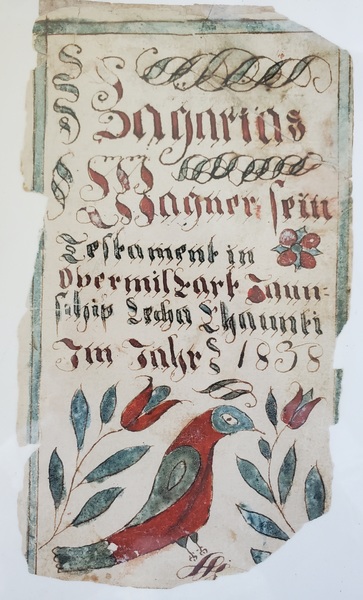 Zagarias
Wagner, sein
Testament in
Obermilfart Taun=
schip Lecha Chaunti
Im Jahr 1838